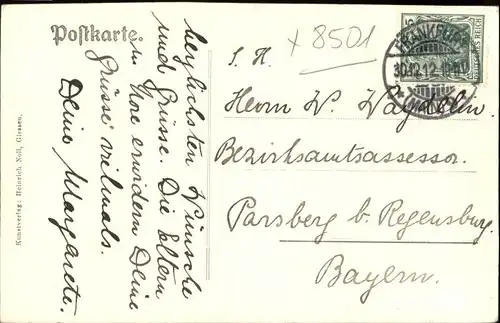 Postkarte.
x 8501
FRANKFURT
30.12.12
DEUTSCHES REICH
S. H.
Herrn W. Waydelin.
Bezirksamtsassessor.
Parsberg b. Regensburg
Bayern.
herzlichsten Wünsche
und Grüsse. Die Eltern
u. Nore erwidern Deine
Grüsse vielmals.
Deine Margarete.
Kunstverlag: Heinrich Noll, Giessen.